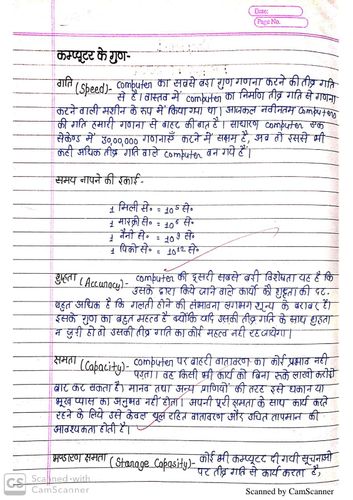 Date:
Page No.
कम्प्यूटर के गुण-
गति (Speed)- computer का सबसे बड़ा गुण गणना करने की तीव्र गति
से है। वास्तव में computer का निर्माण तीव्र गति से गणना
करने वाली मशीन के रूप में किया गया था। आजकल नवीनतम computers
की गति हमारी गणना से बाहर की बात है। साधारण computer एक
सेकेण्ड में 30,00,000 गणनाएँ करने में सक्षम है, अब तो इससे भी
कहीं अधिक तीव्र गति वाले computer बन गये हैं।
समय नापने की इकाई-
1 मिली से० = 10³ से०
1 माइक्रो से० = 10⁶ से०
1 नैनो से० = 10⁹ से०
1 पिको से० = 10¹² से०
शुद्धता (Accuracy)- computer की दूसरी सबसे बड़ी विशेषता यह है कि
उसके द्वारा किये जाने वाले कार्यो की शुद्धता की दर
बहुत अधिक है कि गलती होने की संभावना लगभग शून्य के बराबर है।
इसके गुण का बहुत महत्व है क्योंकि यदि उसकी तीव्र गति के साथ शुद्धता
न जुड़ी हो तो उसकी तीव्र गति का कोई महत्व नहीं रह जायेगा।
क्षमता (Capacity)- computer पर बाहरी वातावरण का कोई प्रभाव नहीं
पड़ता। वह किसी भी कार्य को बिना रुके लाखों करोड़ों
बार कर सकता है। मानव तथा अन्य प्राणियों की तरह इसे थकान या
भूख प्यास का अनुभव नहीं होता। अपनी पूरी क्षमता के साथ कार्य करते
रहने के लिये उसे केवल धूल रहित वातावरण और उचित तापमान की
आवश्यकता होती है।
भण्डारण क्षमता (Storage Capacity)- कोई भी computer दी गयी सूचनाओं
पर तीव्र गति से कार्य करता है,
CS Scanned with
CamScanner
Scanned by CamScanner